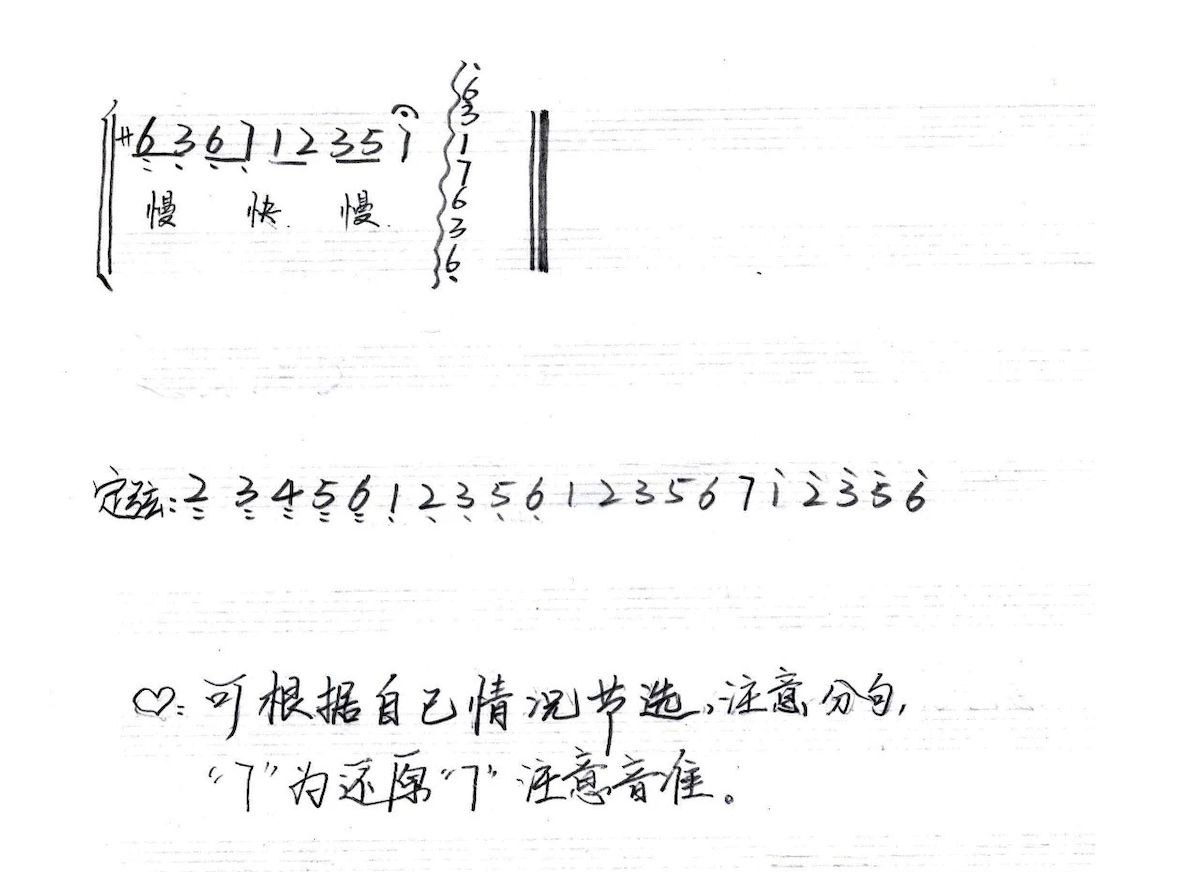 サ 6 3 6 7 1 2 3 5 i
慢 快. 慢.
6
3
1
7
6
3
6
定弦: 2 3 4 5 6 1 2 3 5 6 1 2 3 5 6 7 i 2 3 5 6
♡: 可根据自己情况节选,注意分句,
“7”为还原“7”注意音准。